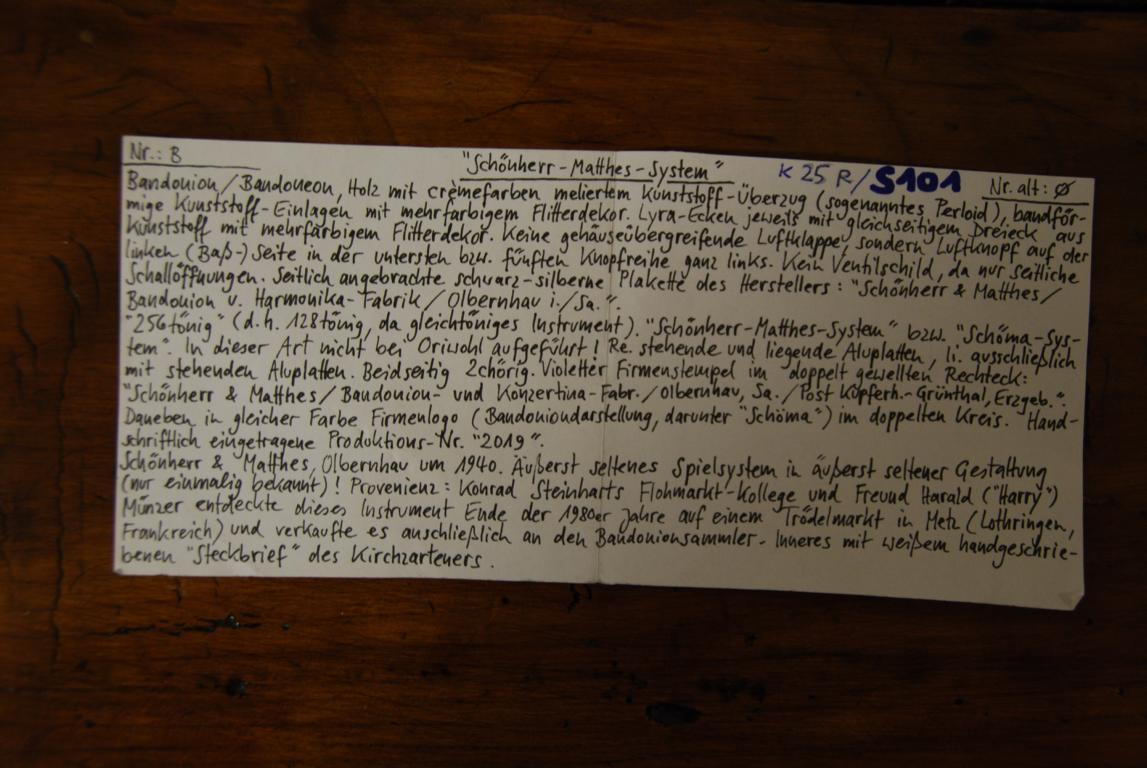 Nr.: B
"Schönherr-Matthes-System"
K 25 R/S101
Nr. alt: ø
Bandonion/Bandoneon, Holz mit crèmefarben meliertem Kunststoff-Überzug (sogenanntes Perloid), bandför-
mige Kunststoff-Einlagen mit mehrfarbigem Flitterdekor. Lyra-Ecken jeweils mit gleichseitigem Dreieck aus
Kunststoff mit mehrfarbigem Flitterdekor. Keine gehäuseübergreifende Luftklappe, sondern Luftknopf auf der
linken (Baß-) Seite in der untersten bzw. fünften Knopfreihe ganz links. Kein Ventilschild, da nur seitliche
Schallöffnungen. Seitlich angebrachte schwarz-silberne Plakette des Herstellers: "Schönherr & Matthes/
Bandonion u. Harmonika-Fabrik/Olbernhau i./Sa.".
"256tönig" (d.h. 128tönig, da gleichtöniges Instrument). "Schönherr-Matthes-System" bzw. "Schöma-Sys-
tem". In dieser Art nicht bei Oriwohl aufgeführt! Re. stehende und liegende Aluplatten, li. ausschließlich
mit stehenden Aluplatten. Beidseitig 2chörig. Violetter Firmenstempel im doppelt gewellten Rechteck:
"Schönherr & Matthes/Bandonion- und Konzertina-Fabr./Olbernhau, Sa./Post Kupferh.-Grünthal, Erzgeb.".
Daneben in gleicher Farbe Firmenlogo (Bandoniondarstellung, darunter "Schöma") im doppelten Kreis. Hand-
schriftlich eingetragene Produktions-Nr. "2019".
Schönherr & Matthes, Olbernhau um 1940. Äußerst seltenes Spielsystem in äußerst seltener Gestaltung
(nur einmalig bekannt)! Provenienz: Konrad Steinharts Flohmarkt-Kollege und Freund Harald ("Harry")
Münzer entdeckte dieses Instrument Ende der 1980er Jahre auf einem Trödelmarkt in Metz (Lothringen,
Frankreich) und verkaufte es anschließlich an den Bandonionsammler. Inneres mit weißem handgeschrie-
benen "Steckbrief" des Kirchzarteners.